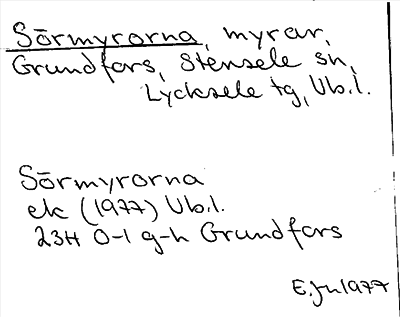 Sörmyrorna, myrar,
Grundfors, Stensele sn,
Lycksele tg, Vb.l.
Sörmyrorna
ek (1977) Vb.l.
23H 0-1 g-h Grundfors
E.Jn 1977